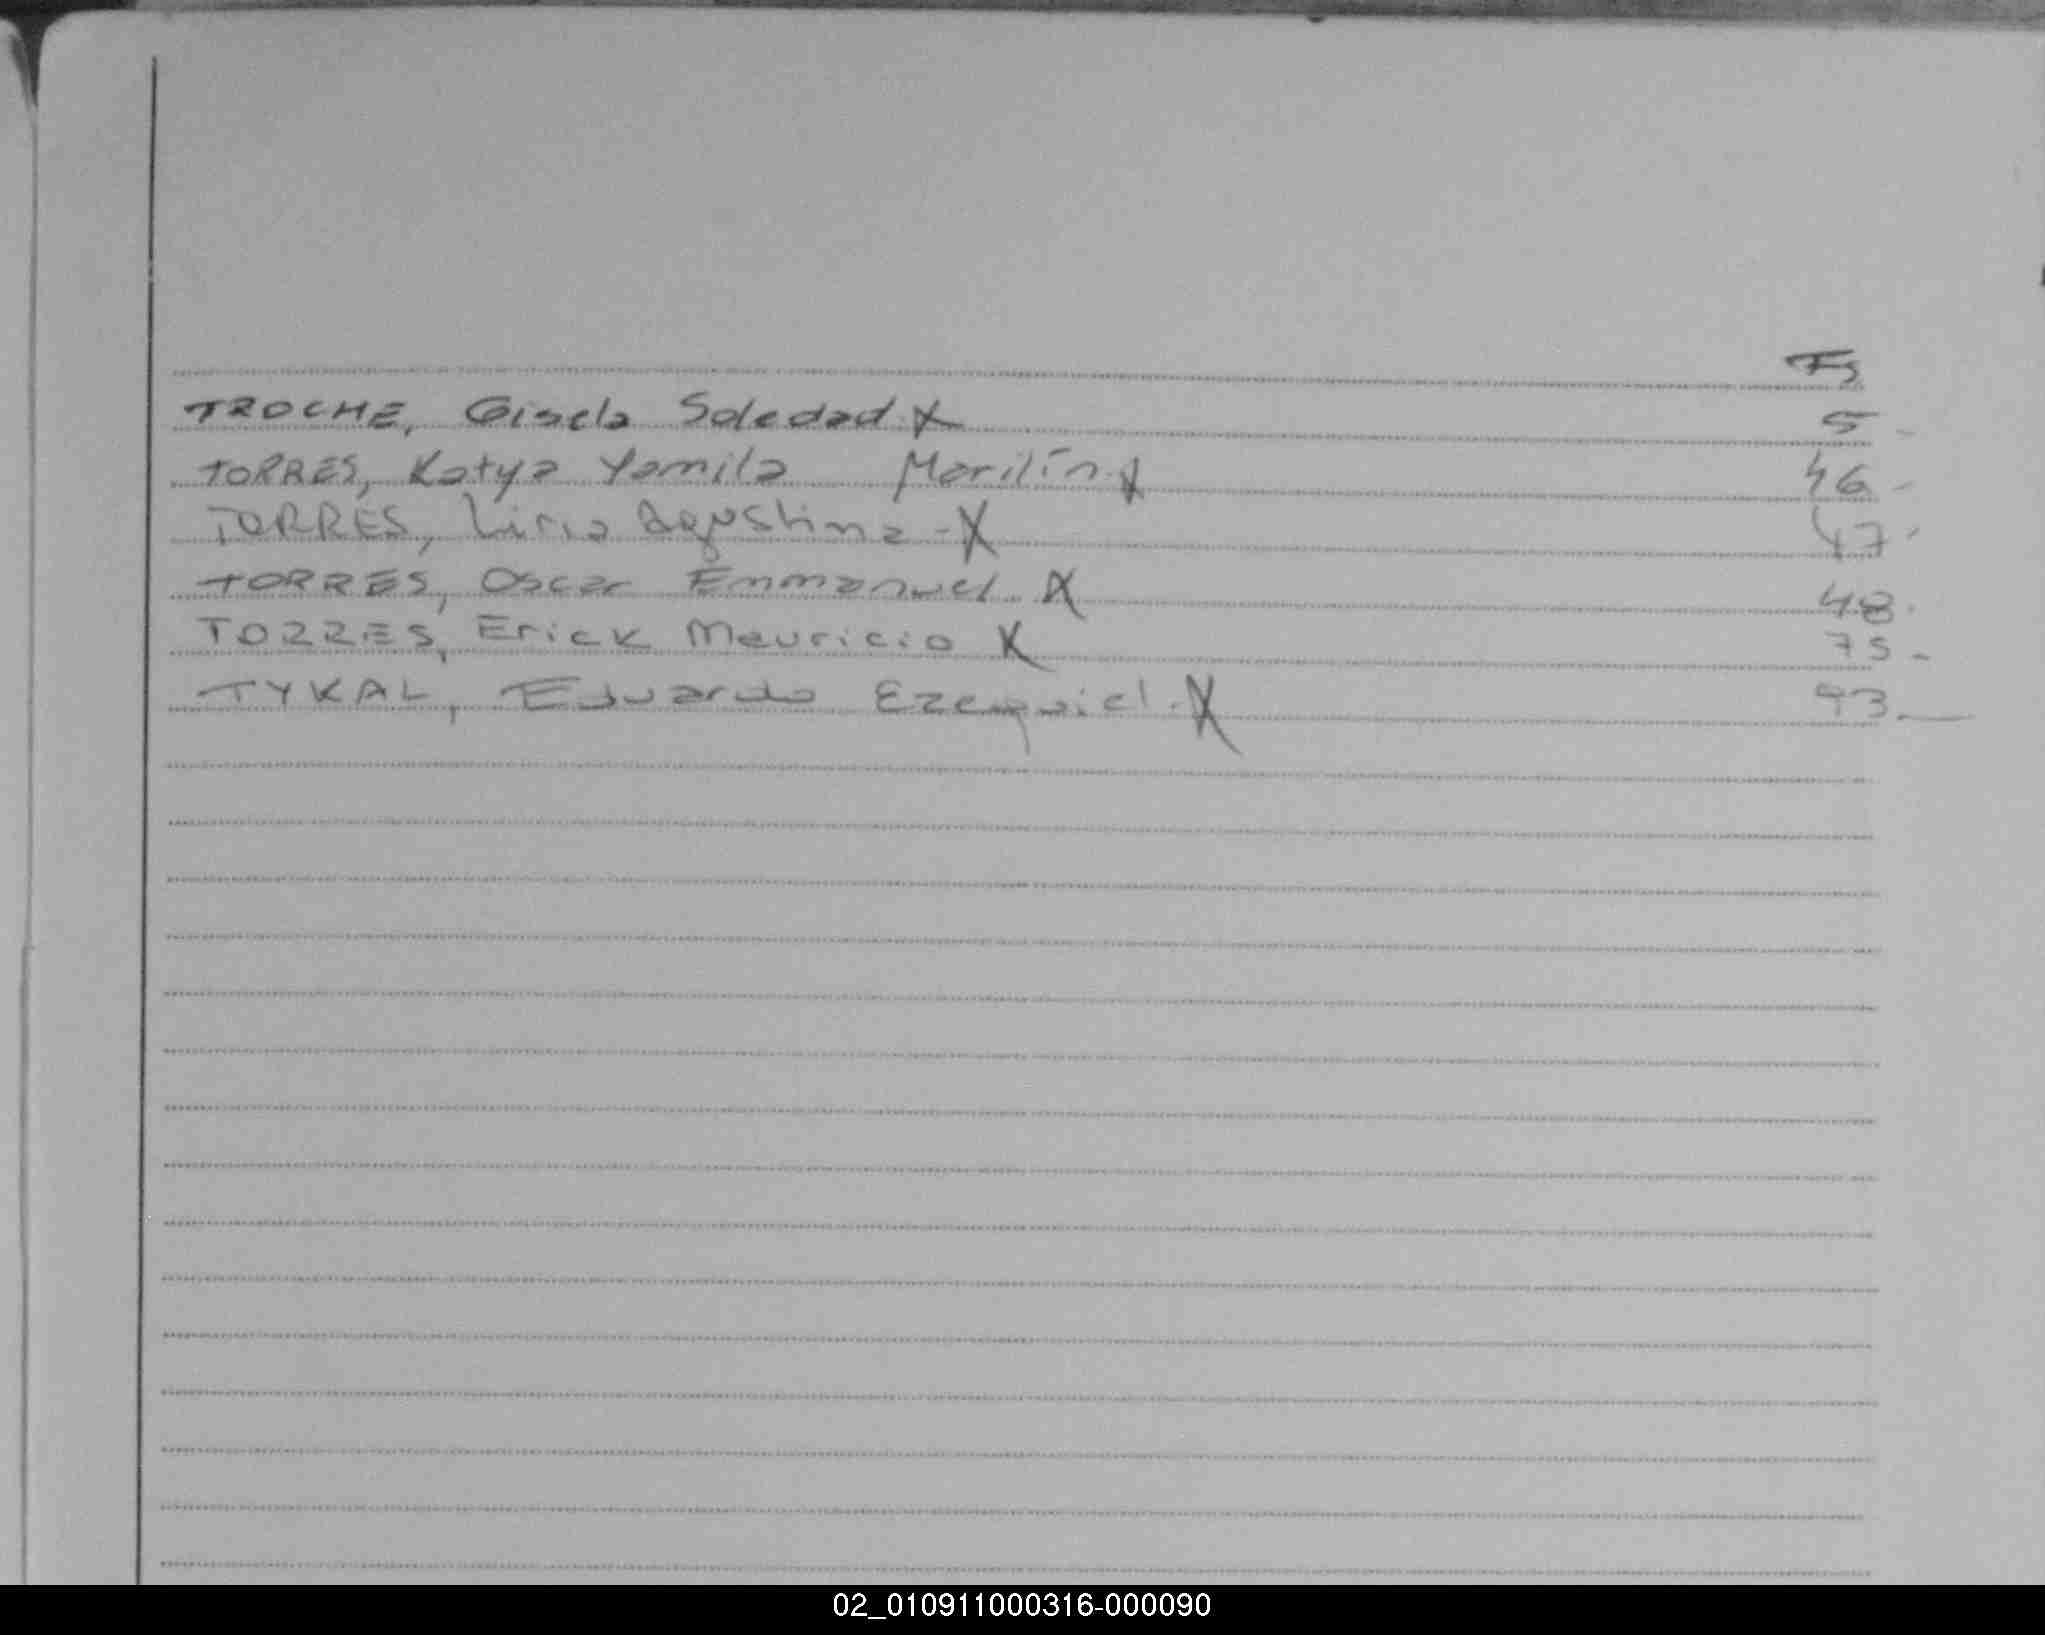 Fs
TROCHE, Gisela Soledad X 5 -
TORRES, Katya Yamila Marilín X 46 -
TORRES, Liria Agustina - X 47 -
TORRES, Oscar Emmanuel. X 48.
TORRES, Erick Mauricio X 75 -
TYKAL, Eduardo Ezequiel. X 93. -
02_010911000316-000090